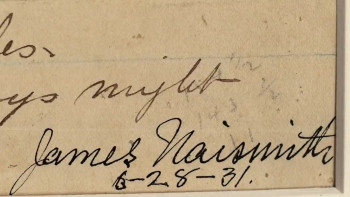 les.
ys might
James Naismith
6-28-31.